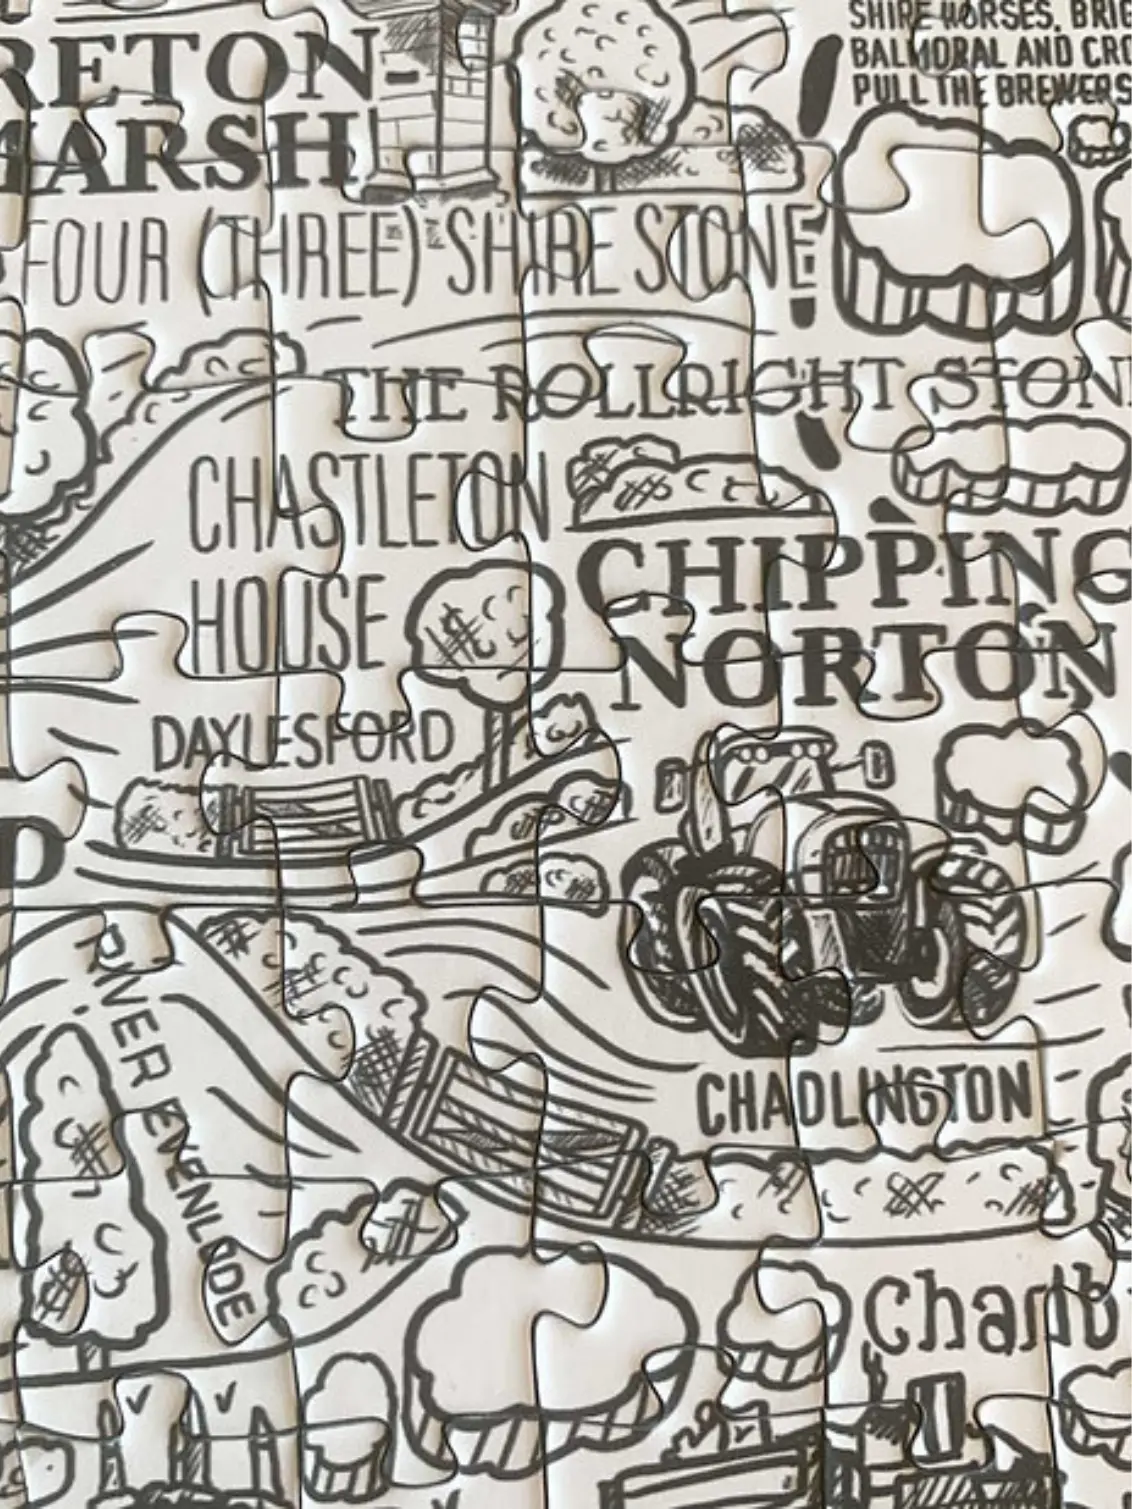 RETON-
MARSH
SHIRE HORSES, BRI
BALMORAL AND CRO
PULL THE BREWERS
FOUR (THREE) SHIRE STONE
THE ROLLRIGHT STON
CHASTLETON
HOUSE
CHIPPING
NORTON
DAYLESFORD
D
RIVER EVENLODE
CHADLINGTON
Charlb